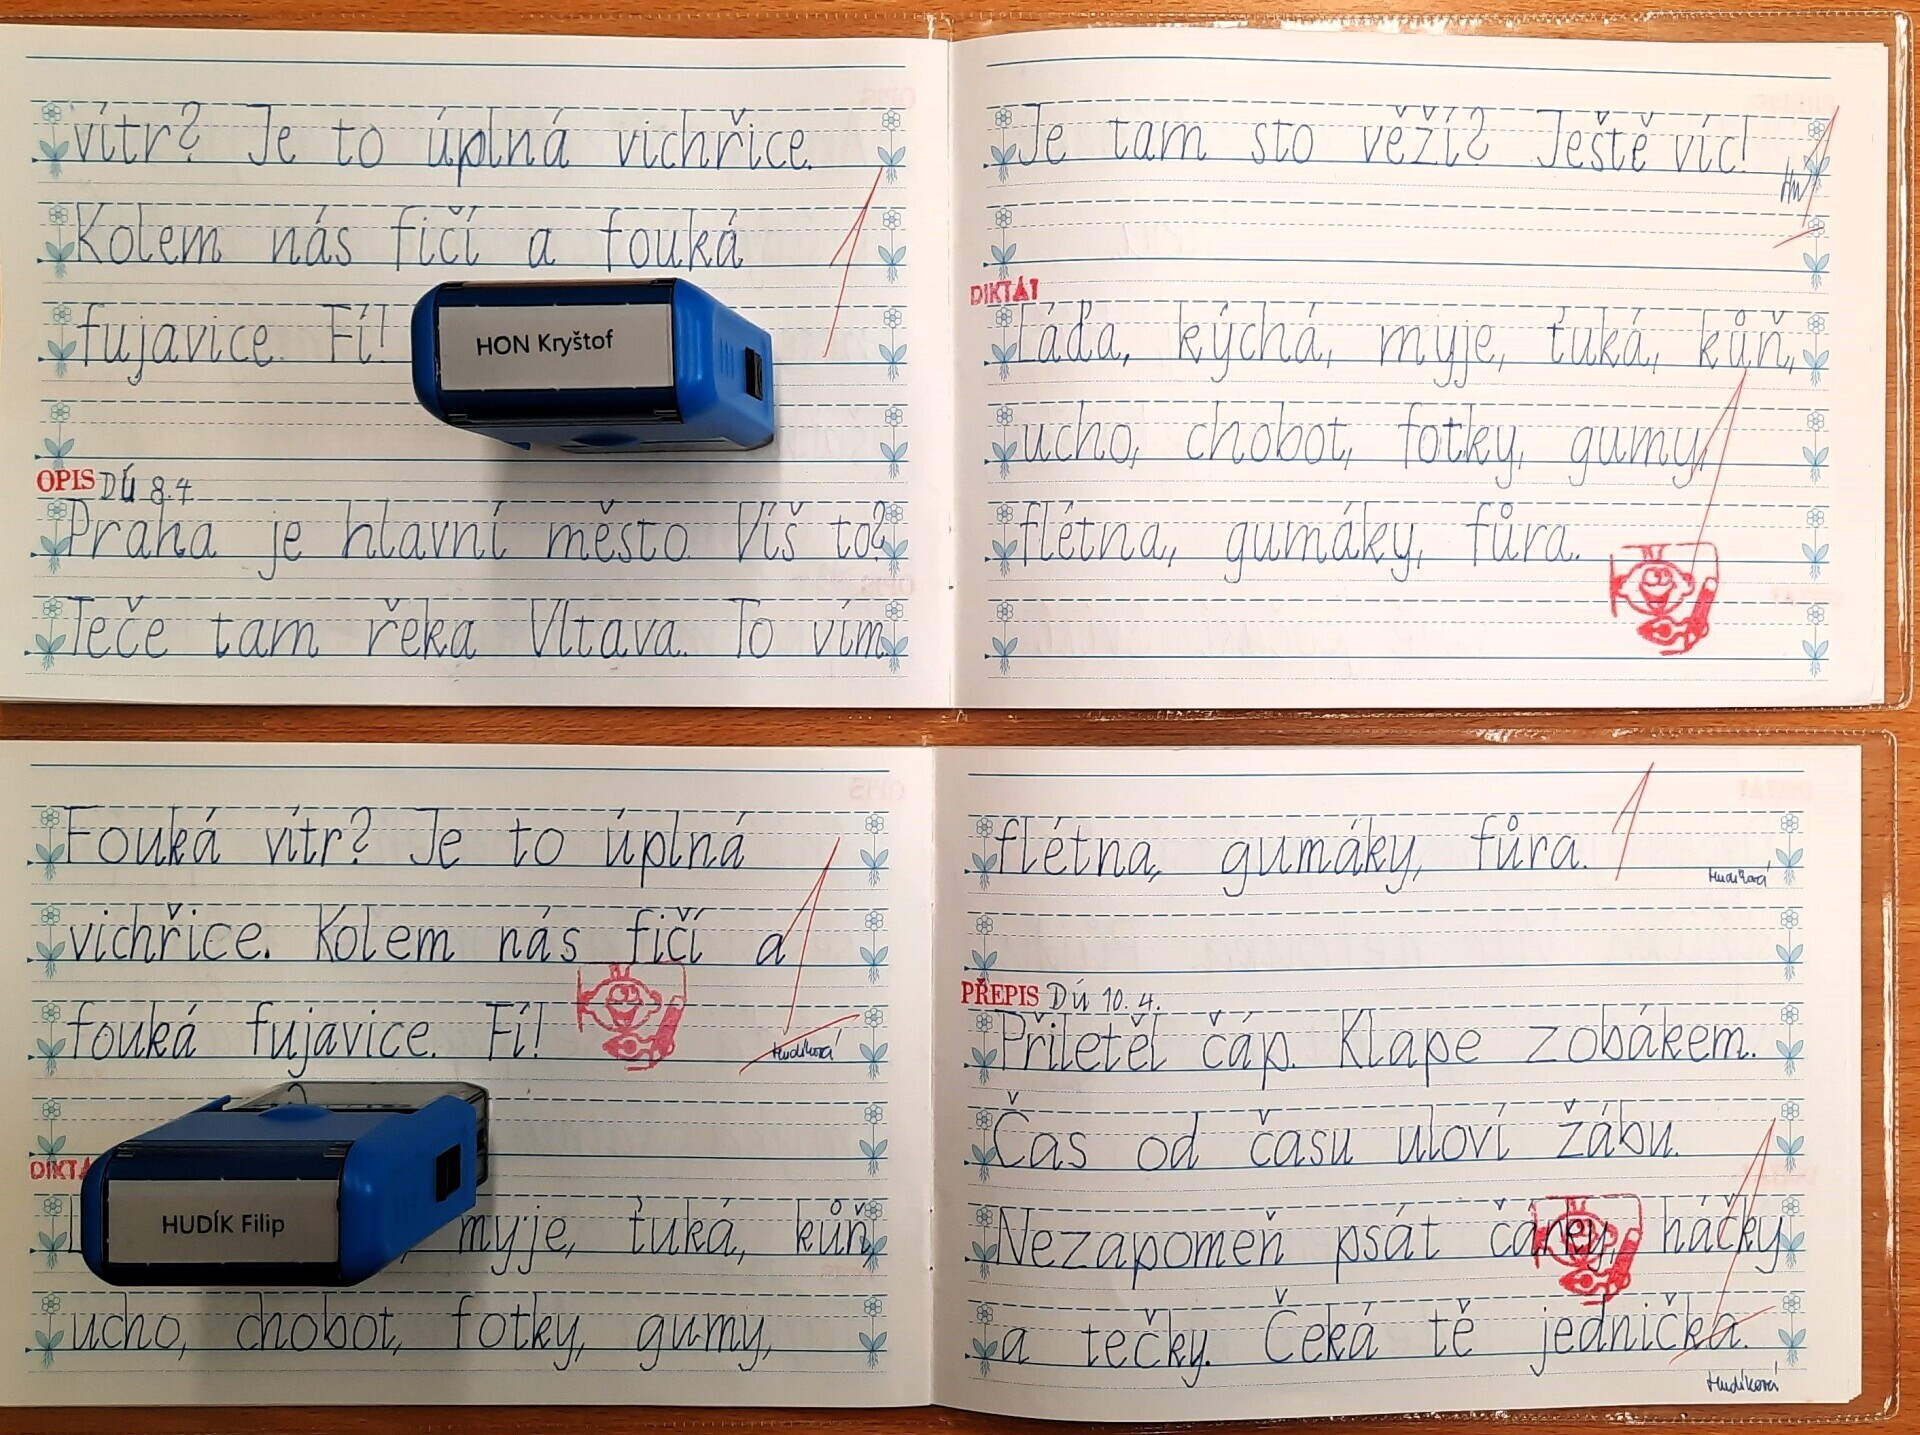 vítr? Je to úplná vichřice.
Kolem nás fičí a fouká
fujavice. Fí!
HON Kryštof
OPIS DÚ 8.4
Praha je hlavní město. Víš to?
Teče tam řeka Vltava. To vím.
Je tam sto věží? Ještě víc!
DIKTÁT
Láďa, kýchá, myje, ťuká, kůň,
ucho, chobot, fotky, gumy,
flétna, gumáky, fůra.
Fouká vítr? Je to úplná
vichřice. Kolem nás fičí a
fouká fujavice. Fí!
Hudíková
HUDÍK Filip
myje, ťuká, kůň,
ucho, chobot, fotky, gumy,
flétna, gumáky, fůra.
Hudíková
PŘEPIS DÚ 10.4.
Přiletěl čáp. Klape zobákem.
Čas od času uloví žábu.
Nezapomeň psát čárky, háčky
a tečky. Čeká tě jednička.
Hudíková